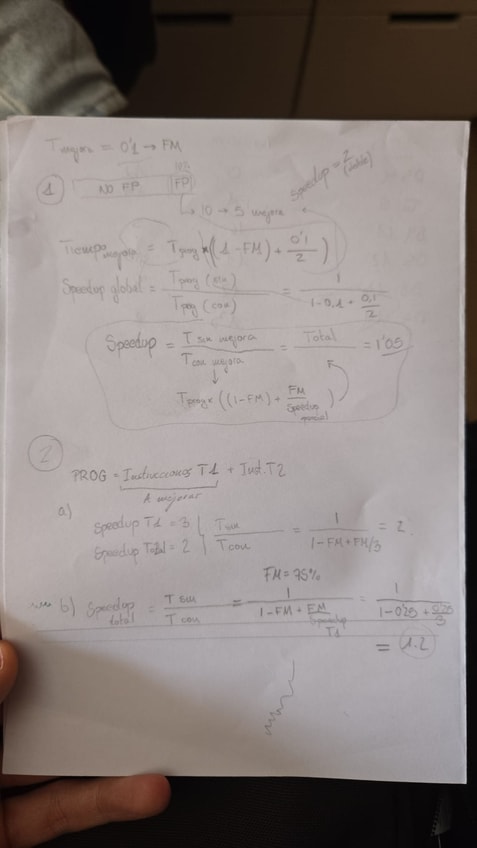 T mejora = 0'1 → FM
Speedup = 2 (doble)
1
10%
NO FP FP
↳ 10 → 5 mejora
Tiempo mejora = Tprog * ((1 - FM) + 0'1/2)
Speedup global = Tprog (sin) / Tprog (con) = 1 / (1-0,1 + 0,1/2)
Speedup = T sin mejora / T con mejora = Total = 1'05
↓
Tprog * ((1-FM) + FM/Speedup)
2
PROG = Instrucciones T1 + Inst. T2
A mejorar
a)
Speedup T1 = 3
Speedup Total = 2
Tsin / Tcon = 1 / (1-FM+FM/3) = 2.
FM = 75%
b) Speedup total = T sin / T con = 1 / (1-FM + FM/Speedup T1) = 1 / (1-0'25 + 0'25/3)
= 1.2